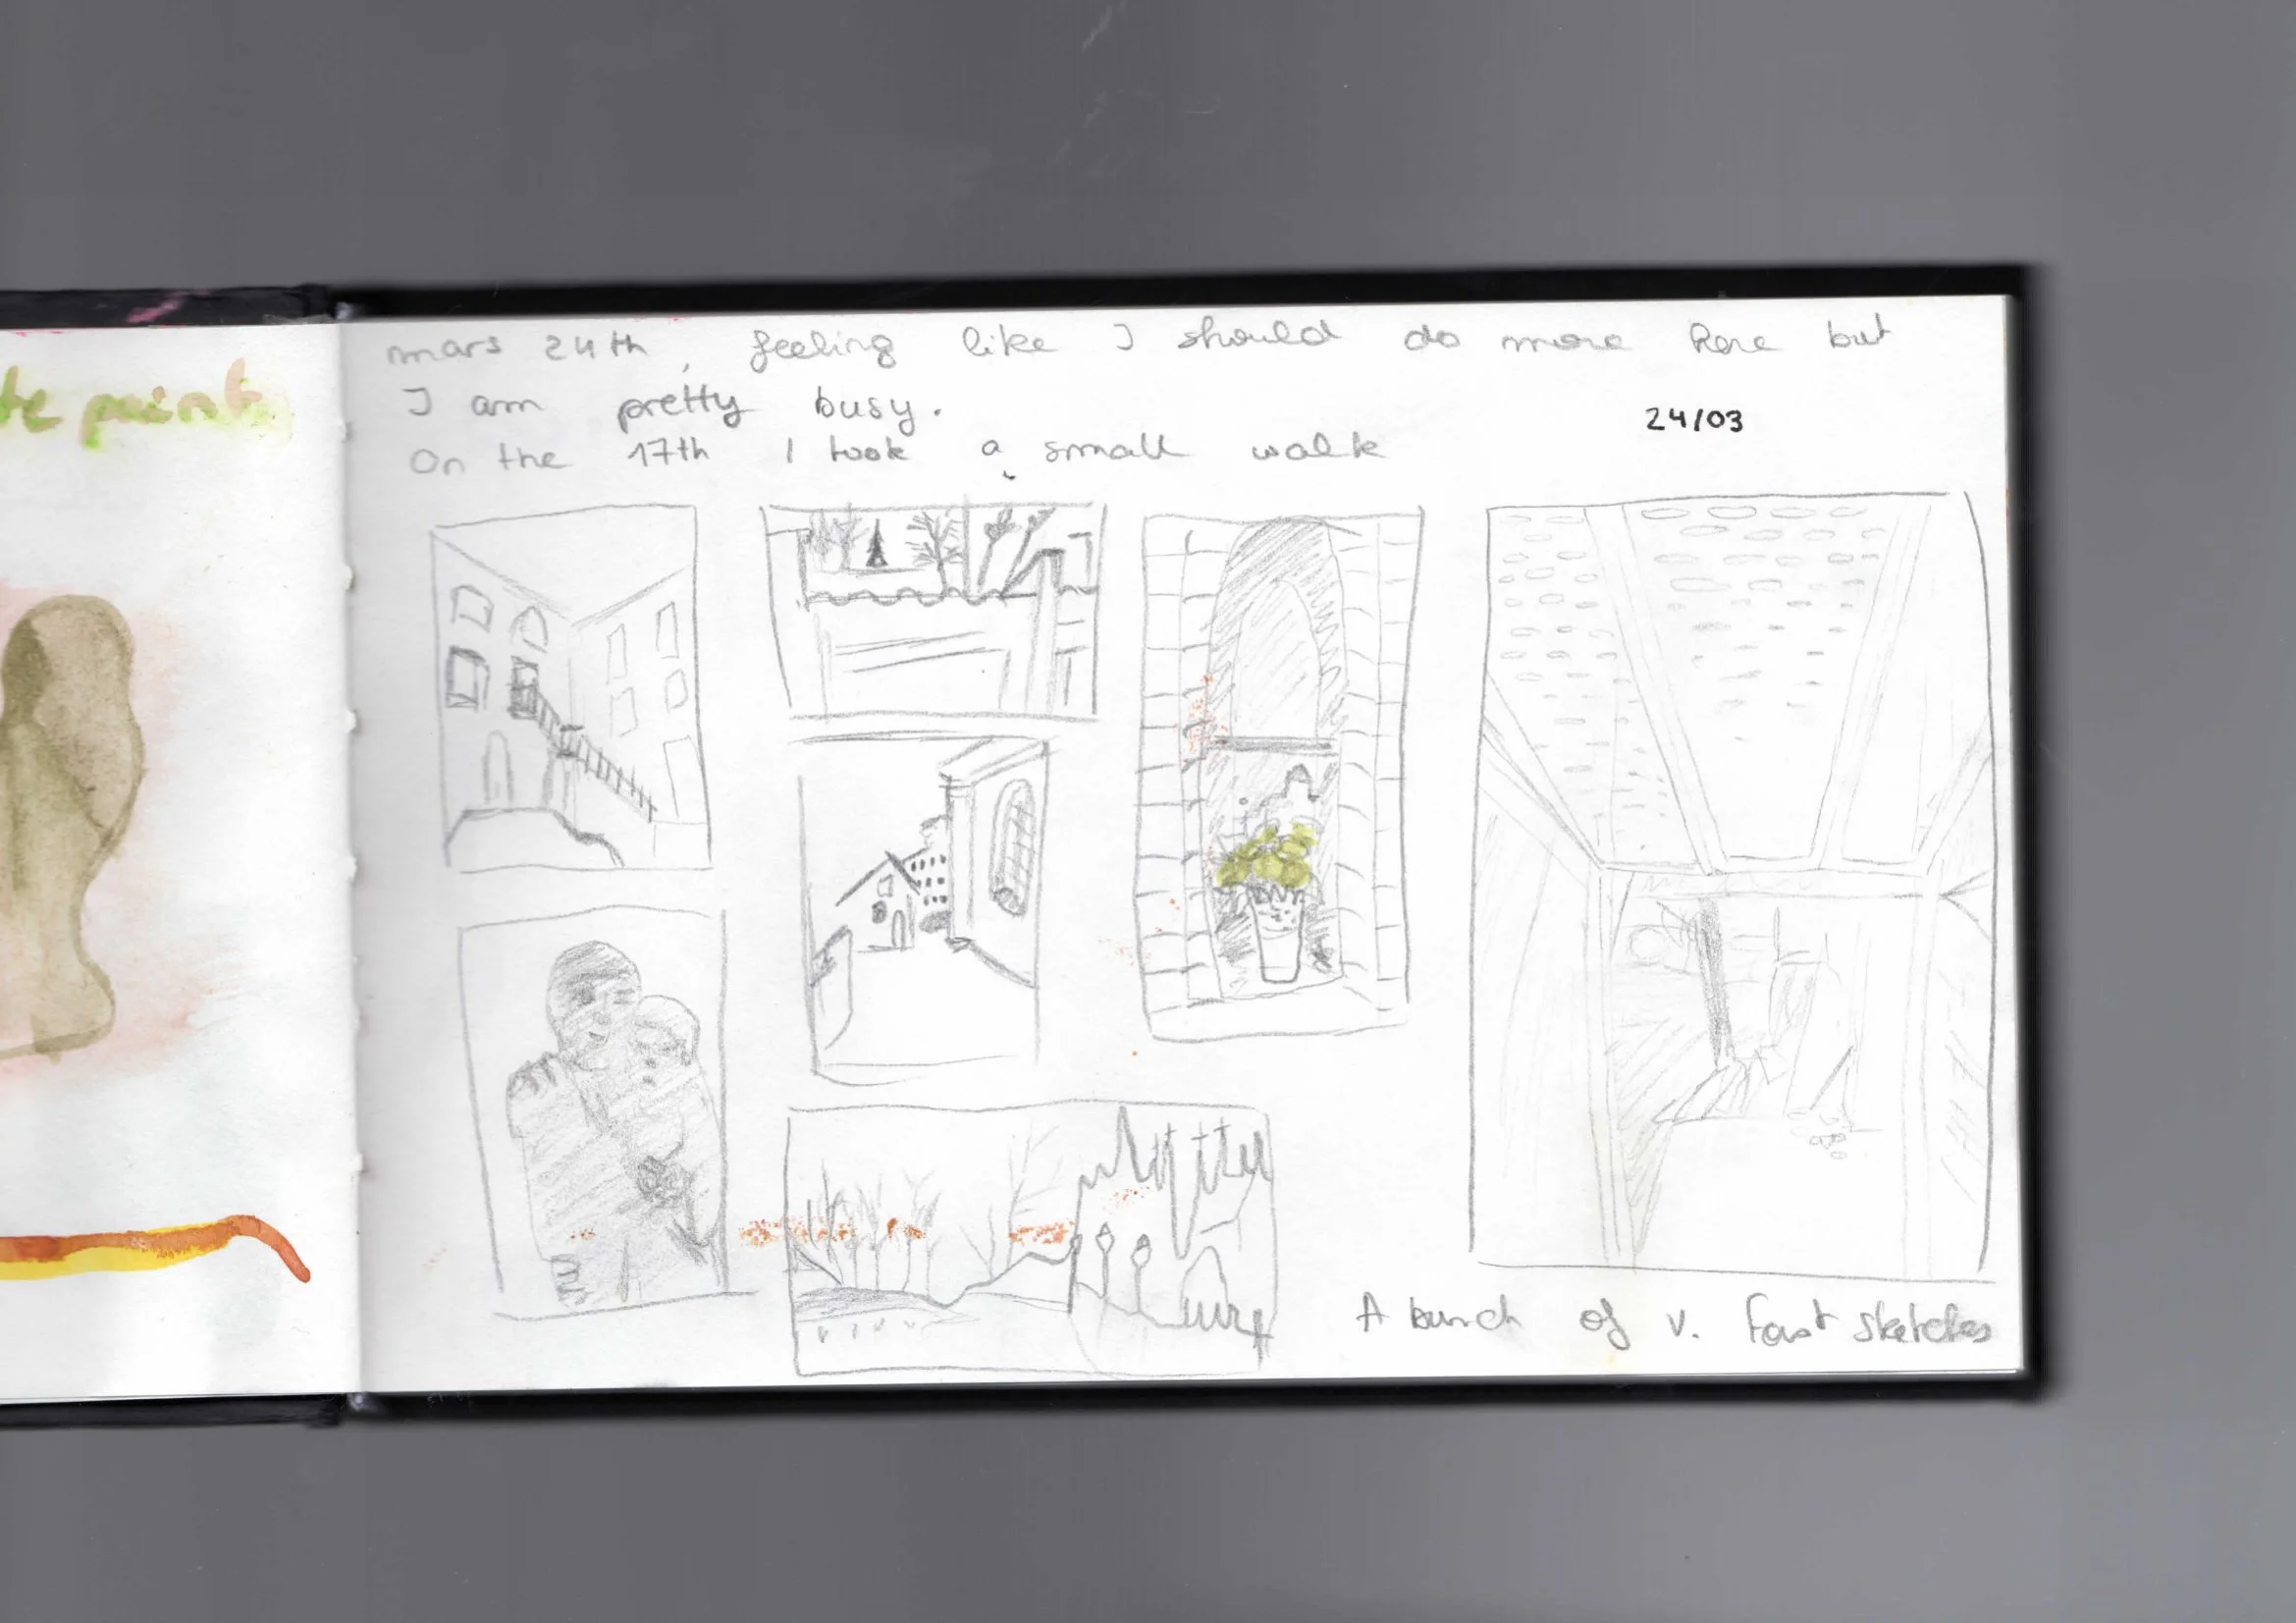 te paint
mars 24th, feeling like I should do more here but
I am pretty busy.
24/03
On the 17th I took a small walk
A bunch of v. fast sketches